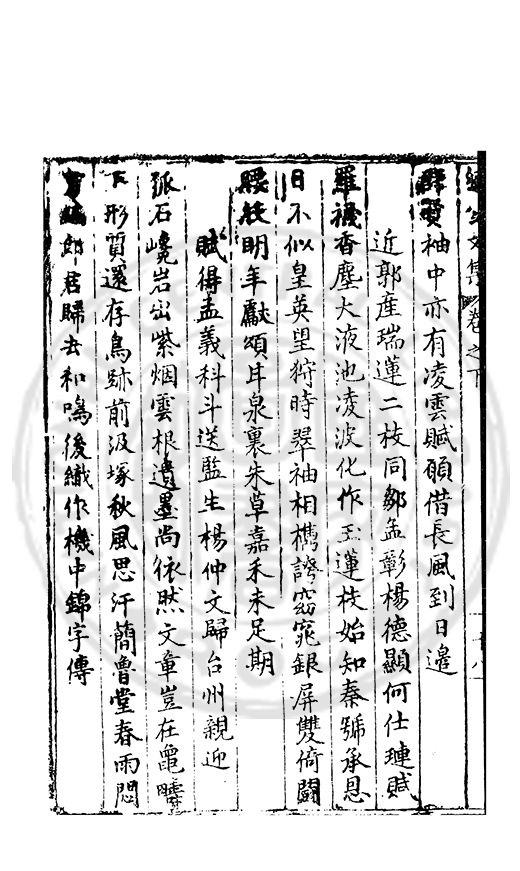 文集 卷之下
群賢袖中亦有凌雲賦願借長風到日邊
近郭產瑞蓮二枝同鄒孟彰楊德顯何仕璉賦
羅襪香塵大液池凌波化作玉蓮枝始知秦號承恩
日不似皇英望狩時翠袖相携誇窈窕銀屏雙倚鬪
腰肢明年獻頌甘泉裏朱草嘉禾未足期
賦得孟義科斗送監生楊仲文歸台州親迎
孤石巉岩出紫烟雲根遺墨尚依然文章豈在黽疇
下形質還存鳥跡前汲塚秋風思汗簡魯堂春雨悶
郎君歸去和鳴後織作機中錦字傳